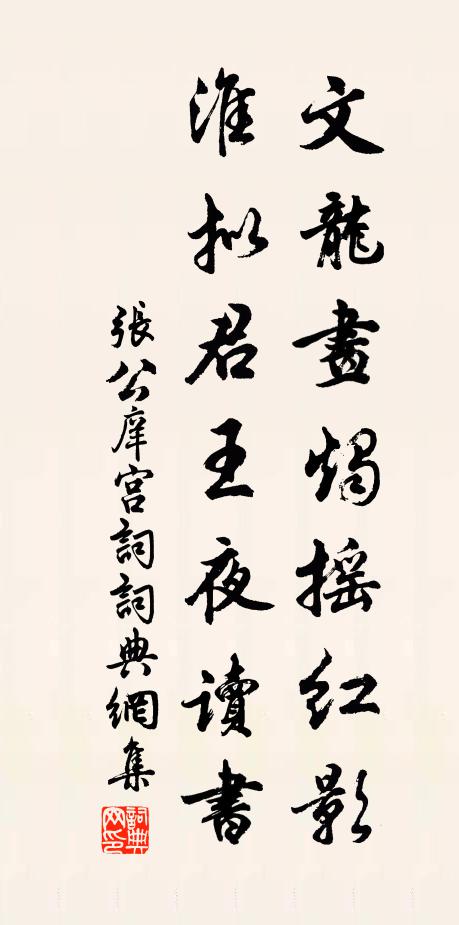 文龍畫燭搖紅影
淮拟君王夜讀書
張公庠宮詞詞典網集
詞典网印